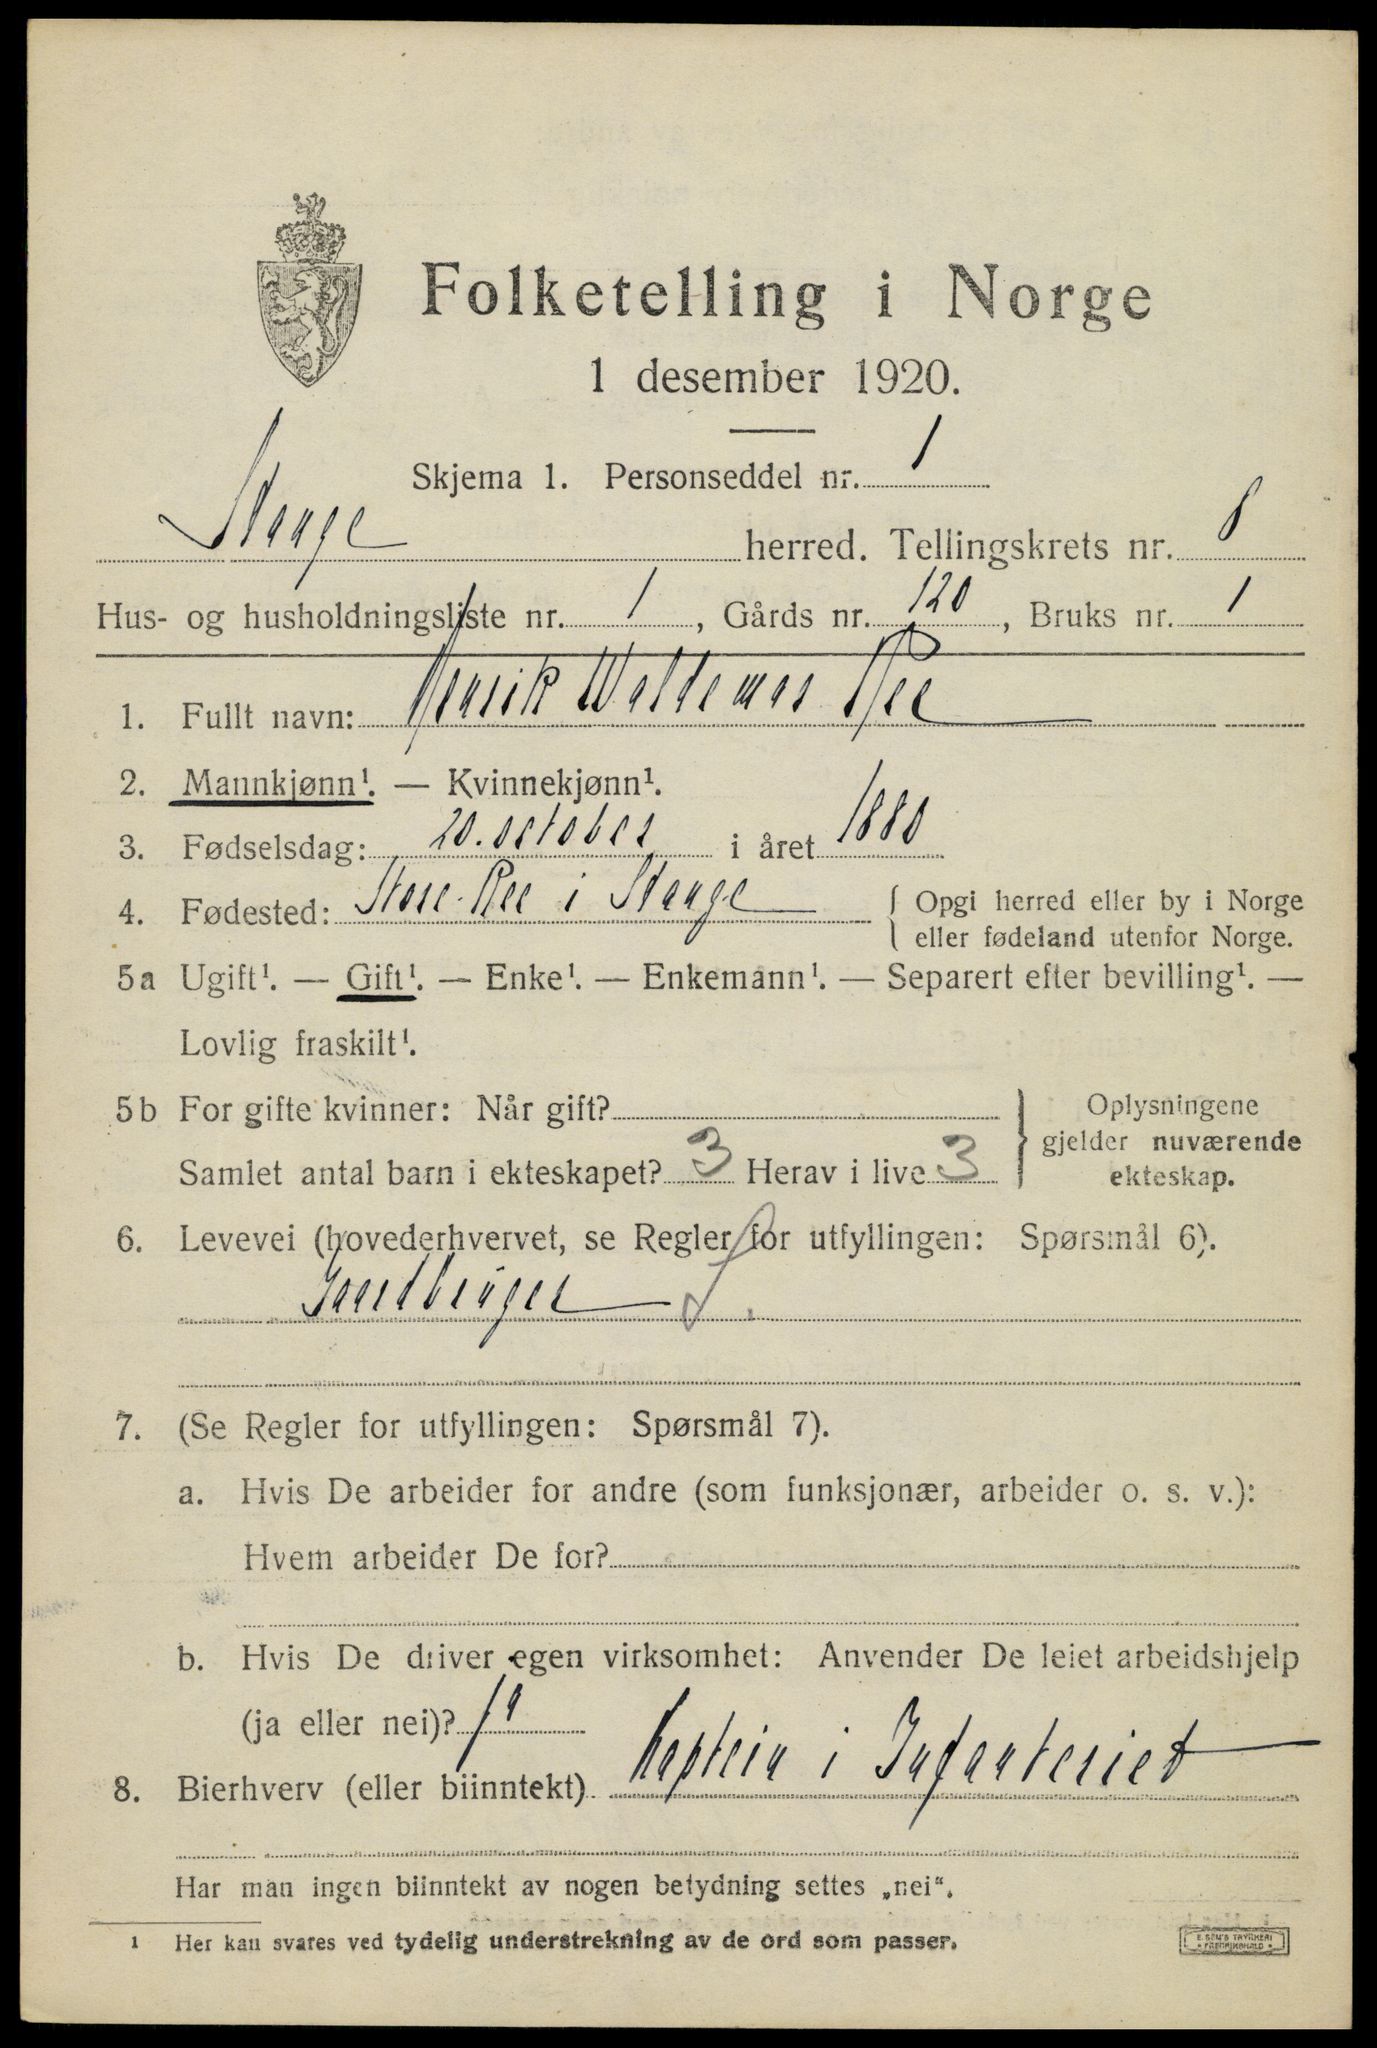 Folketelling i Norge
1 desember 1920.
Skjema 1. Personseddel nr. 1
Stange herred. Tellingskrets nr. 8
Hus- og husholdningsliste nr. 1, Gårds nr. 120, Bruks nr. 1
1. Fullt navn: Henrik Waldemar Ree
2. Mannkjønn¹. — Kvinnekjønn¹.
3. Fødselsdag: 20. october i året 1880
4. Fødested: Store-Ree i Stange { Opgi herred eller by i Norge
eller fødeland utenfor Norge.
5a Ugift¹. — Gift¹. — Enke¹. — Enkemann¹. — Separert efter bevilling¹. —
Lovlig fraskilt¹.
5b For gifte kvinner: Når gift? } Oplysningene
gjelder nuværende
Samlet antal barn i ekteskapet? 3 Herav i live 3
ekteskap.
6. Levevei (hovederhvervet, se Regler for utfyllingen: Spørsmål 6).
Gaardbruger
7. (Se Regler for utfyllingen: Spørsmål 7).
a. Hvis De arbeider for andre (som funksjonær, arbeider o. s. v.):
Hvem arbeider De for?
b. Hvis De driver egen virksomhet: Anvender De leiet arbeidshjelp
(ja eller nei)? ja
8. Bierhverv (eller biinntekt) Kaptein i Infanteriet
Har man ingen biinntekt av nogen betydning settes „nei“.
1 Her kan svares ved tydelig understrekning av de ord som passer.
E. SEM'S TRYKKERI
FREDRIKSHALD